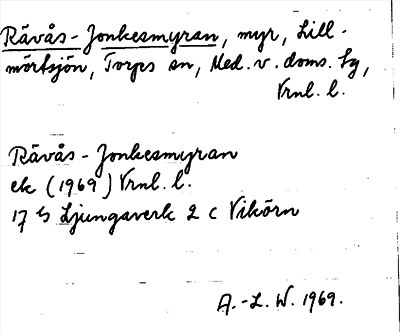 Rävås-Jonkesmyran, myr, Lill-
mörtsjön, Torps sn, Med. v. doms. tg,
Vrnl. l.
Rävås-Jonkesmyran
ek (1969) Vrnl. l.
17 G Ljungaverk 2 c Vikörn
A.-L. W. 1969.